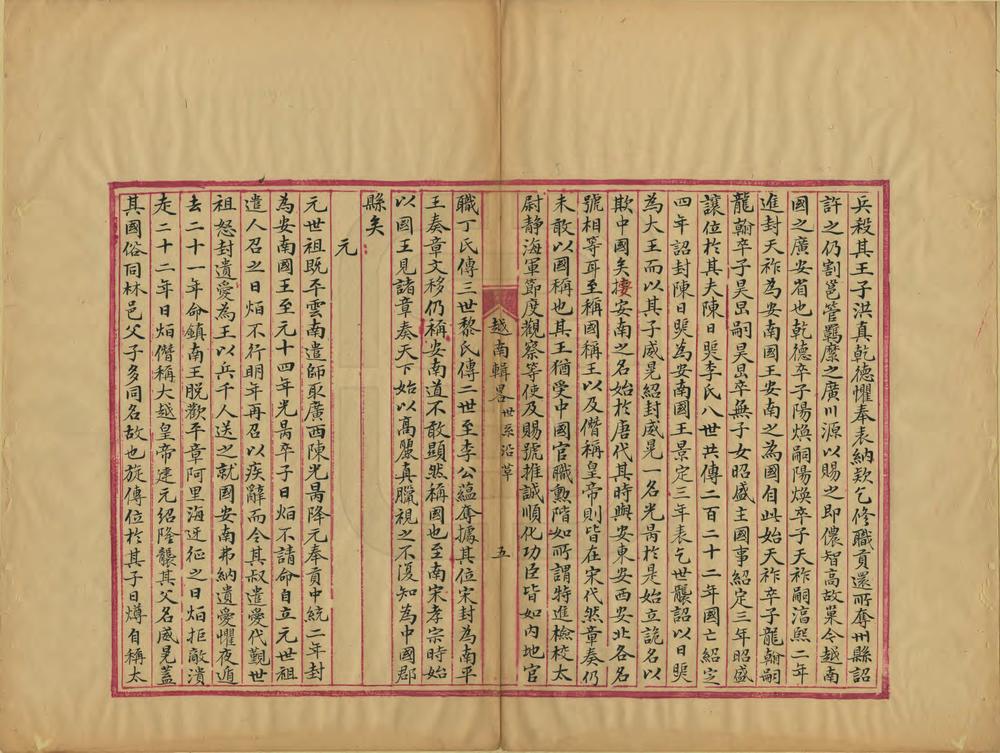 兵殺其王子洪真乾德懼奉表納欵乞修職貢還所奪州縣詔
許之仍割邕管羈縻之廣川源以賜之即儂智高故巢今越南
國之廣安省也乾德卒子陽煥嗣陽煥卒子天祚嗣淳熙二年
進封天祚為安南國王安南之為國自此始天祚卒子龍翰嗣
龍翰卒子昊旵嗣昊旵卒無子女昭盛主國事紹定三年昭盛
讓位於其夫陳日煚李氏八世共傳二百二十二年國亡紹定
四年詔封陳日煚為安南國王景定三年表乞世襲詔以日煚
為大王而以其子威晃紹封威晃一名光昺於是始立詭名以
欺中國矣按安南之名始於唐代其時與安東安西安北各名
號相等耳至稱國稱王以及僭稱皇帝則皆在宋代然章奏仍
未敢以國稱也其王猶受中國官職勲階如所謂特進檢校太
尉静海軍節度觀察等使及賜號推誠順化功臣皆如内地官
越南輯畧 世系沿革 五
職丁氏傳三世黎氏傳二世至李公蘊奪據其位宋封為南平
王奏章文移仍稱安南道不敢顯然稱國也至南宋孝宗時始
以國王見諸章奏天下始以高麗真臘視之不復知為中國郡
縣矣
元
元世祖既平雲南遣師取廣西陳光昺降元奉貢中統二年封
為安南國王至元十四年光昺卒子日烜不請命自立元世祖
遣人召之日烜不行明年再召以疾辭而令其叔遺愛代覲世
祖怒封遺愛為王以兵千人送之就國安南弗納遺愛懼夜遁
去二十一年命鎮南王脱歡平章阿里海迓征之日烜拒敵潰
走二十二年日烜僭稱大越皇帝建元紹隆襲其父名威晃蓋
其國俗同林邑父子多同名故也旋傳位於其子日燇自稱太